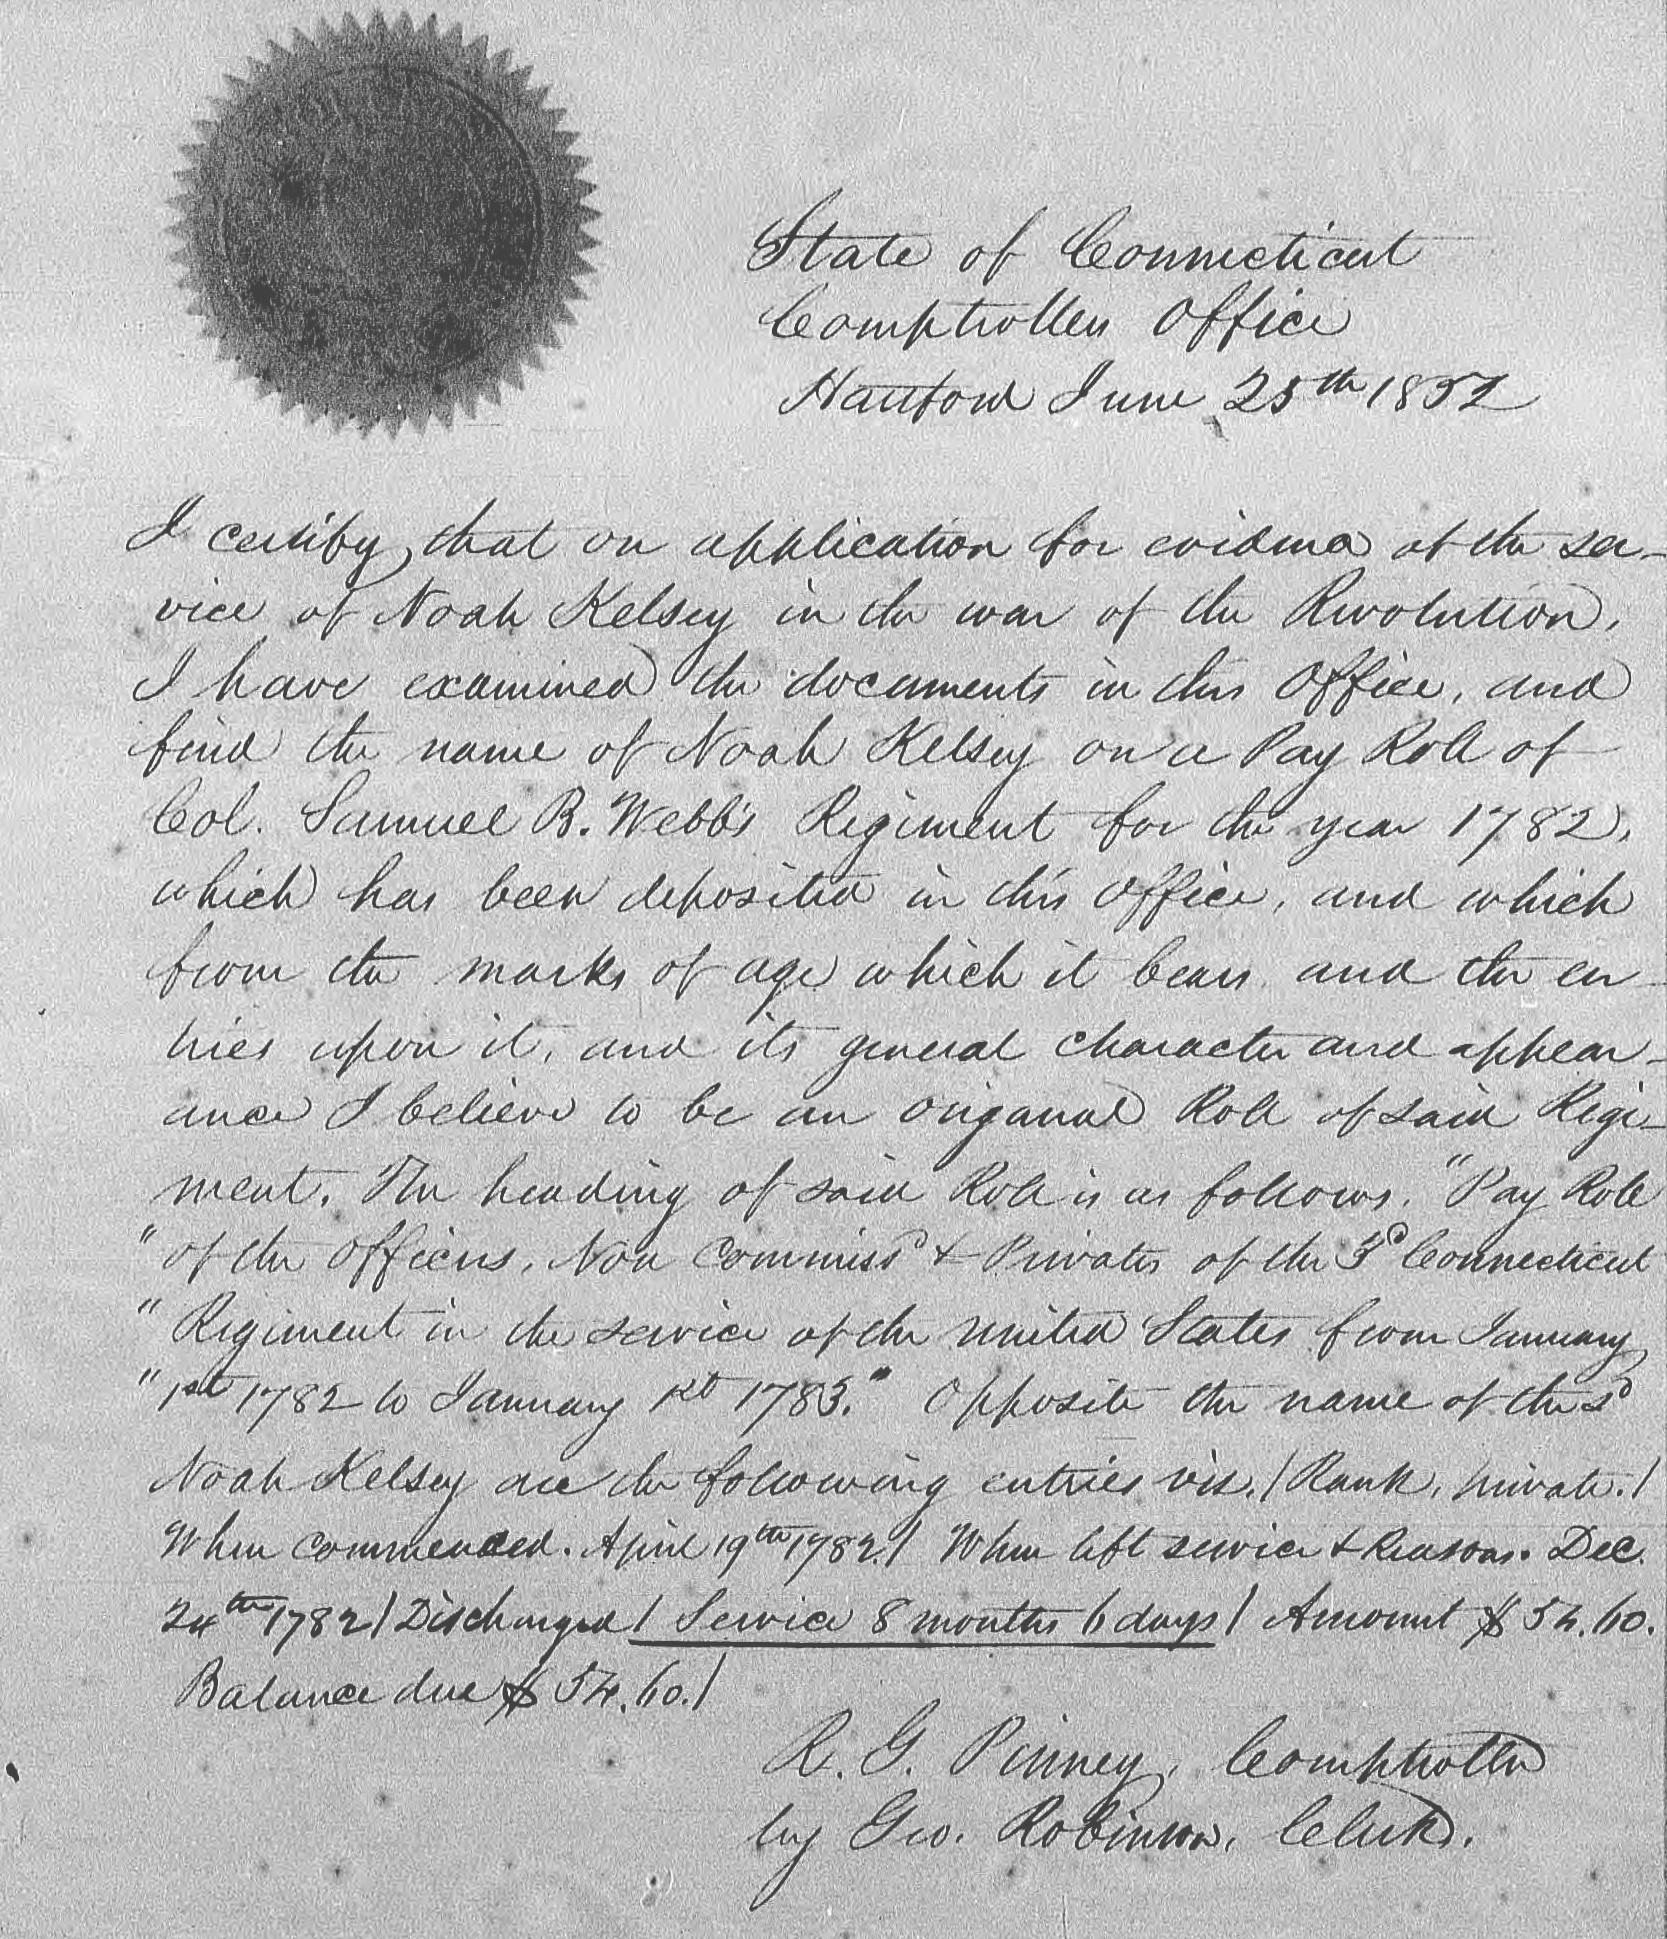 State of Connecticut
Comptrollers Office
Hartford June 25th 1852
I certify, that on application for evidence of the ser-
vice of Noah Kelsey in the war of the Revolution,
I have examined the documents in this Office, and
find the name of Noah Kelsey on a Pay Roll of
Col. Samuel B. Webb's Regiment for the year 1782,
which has been deposited in this office, and which
from the marks of age which it bears and the en-
tries upon it, and its general character and appear-
ance I believe to be an origanal Roll of said Regi-
ment. The heading of said Roll is as follows. "Pay Roll
"of the Officers, Non Commissd & Privates of the 3d Connecticut
"Regiment in the service of the United States from January
"1st 1782 to January 1st 1783." Opposite the name of the sd
Noah Kelsey are the following entries vis. / Rank, private. /
When commenced. April 19th 1782. / When left service & Reasons. Dec.
24th 1782 / Discharged / Service 8 months 6 days / Amount $54.60.
Balance due $54.60. /
R. G. Pinney, Comptroller
by Geo. Robinson, Clerk.